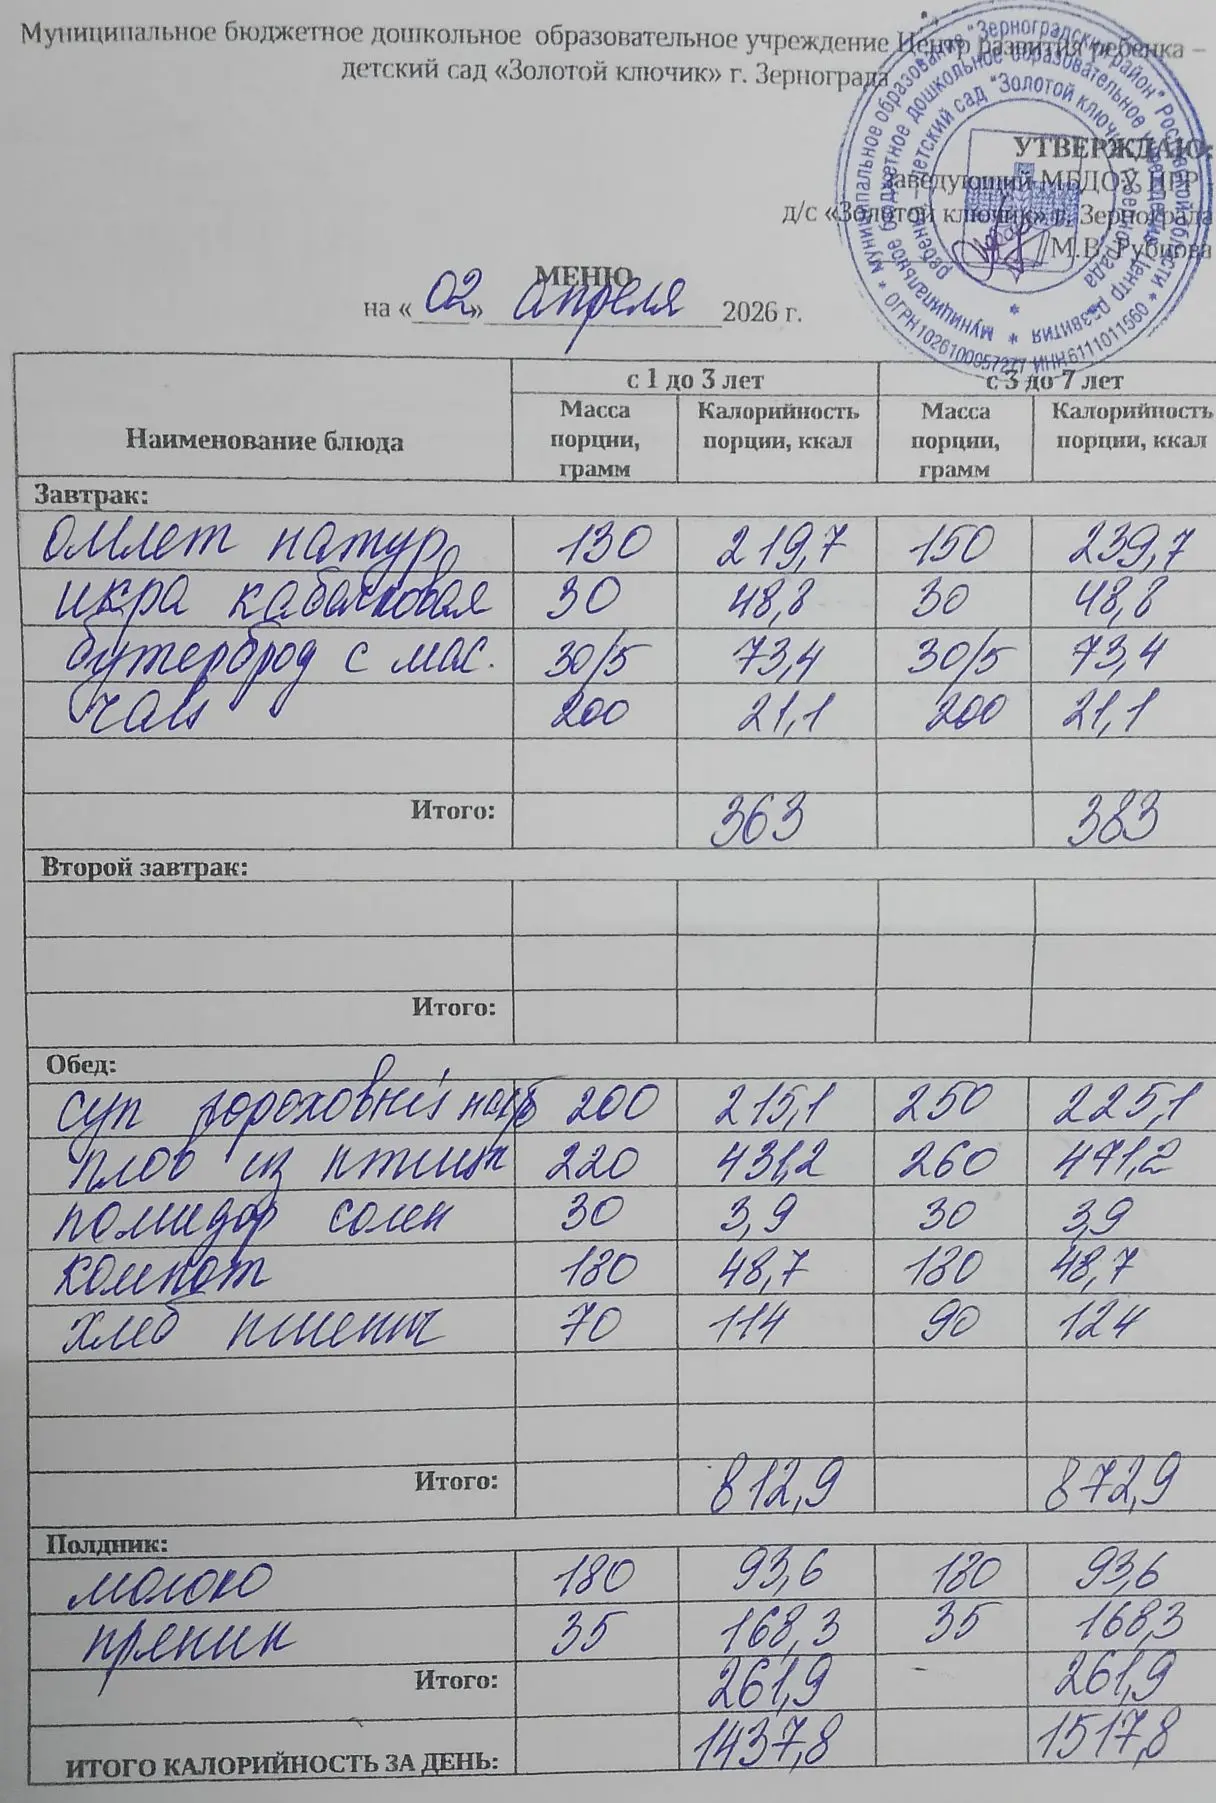 Муниципальное бюджетное дошкольное образовательное учреждение Центр развития ребенка –
детский сад «Золотой ключик» г. Зернограда
УТВЕРЖДАЮ:
заведующий МБДОУ ЦРР
д/с «Золотой ключик» г. Зернограда
М.В. Рубцова
МЕНЮ
на «02» апреля 2026 г.
Наименование блюда с 1 до 3 лет с 3 до 7 лет
Масса порции, грамм Калорийность порции, ккал Масса порции, грамм Калорийность порции, ккал
Завтрак:
омлет натур 130 219,7 150 239,7
икра кабачковая 30 48,8 30 48,8
бутерброд с мас. 30/5 73,4 30/5 73,4
чай 200 21,1 200 21,1
Итого: 363 383
Второй завтрак:
Итого:
Обед:
суп гороховый 200 215,1 250 225,1
плов из птицы 220 431,2 260 471,2
помидор солен 30 3,9 30 3,9
компот 180 48,7 180 48,7
хлеб пшенич 70 114 90 124
Итого: 812,9 872,9
Полдник:
молоко 180 93,6 180 93,6
пряник 35 168,3 35 168,3
Итого: 261,9 261,9
ИТОГО КАЛОРИЙНОСТЬ ЗА ДЕНЬ: 1437,8 1517,8
муниципальное образование "Зерноградский район" Ростовской области * ОГРН 1026100957277 ИНН 6111011560 *